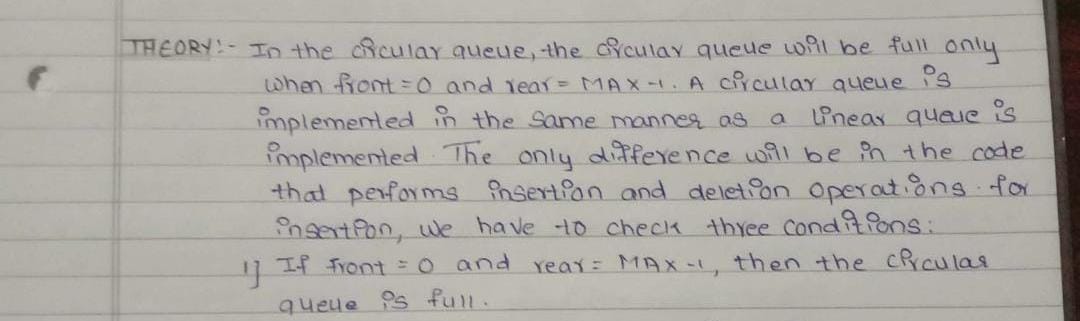 THEORY:- In the circular queue, the circular queue will be full only
when front = 0 and rear = MAX-1. A circular queue is
implemented in the same manner as a linear queue is
implemented. The only difference will be in the code
that performs insertion and deletion operations. for
insertion, we have to check three conditions:
1] If front = 0 and rear = MAX-1, then the circular
queue is full.